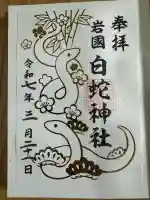 奉拝
岩国
白蛇神社
令和七年三月二十一日